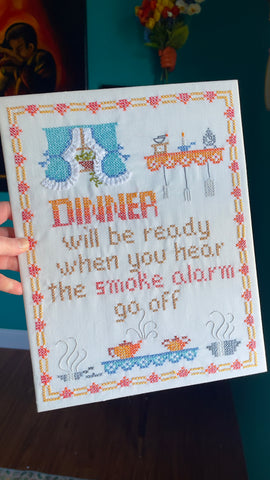 DINNER
will be ready
when you hear
the smoke alarm
go off